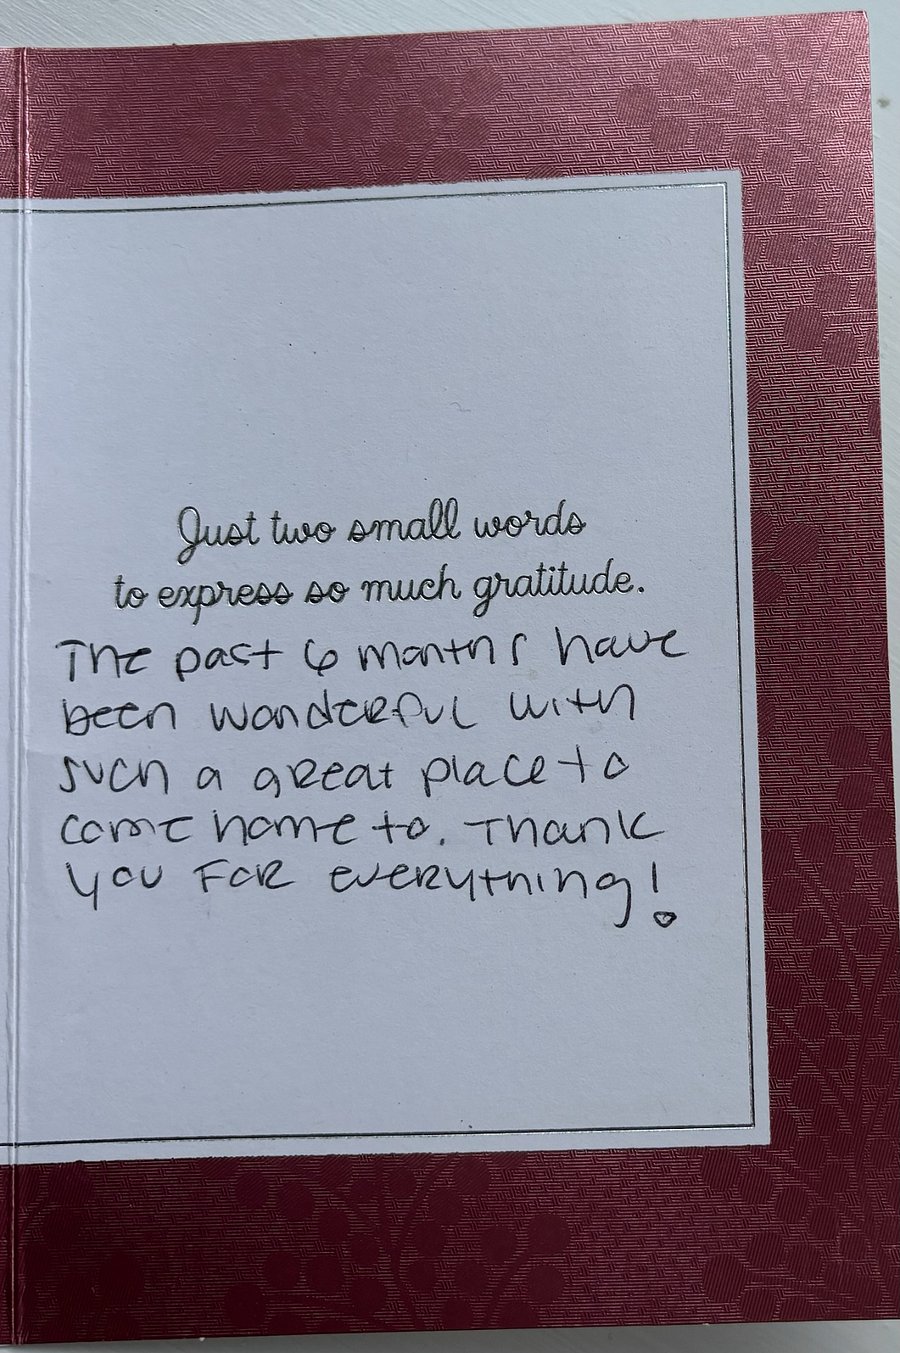 Just two small words
to express so much gratitude.
The past 6 months have
been wonderful with
such a great place to
come home to. Thank
you for everything!